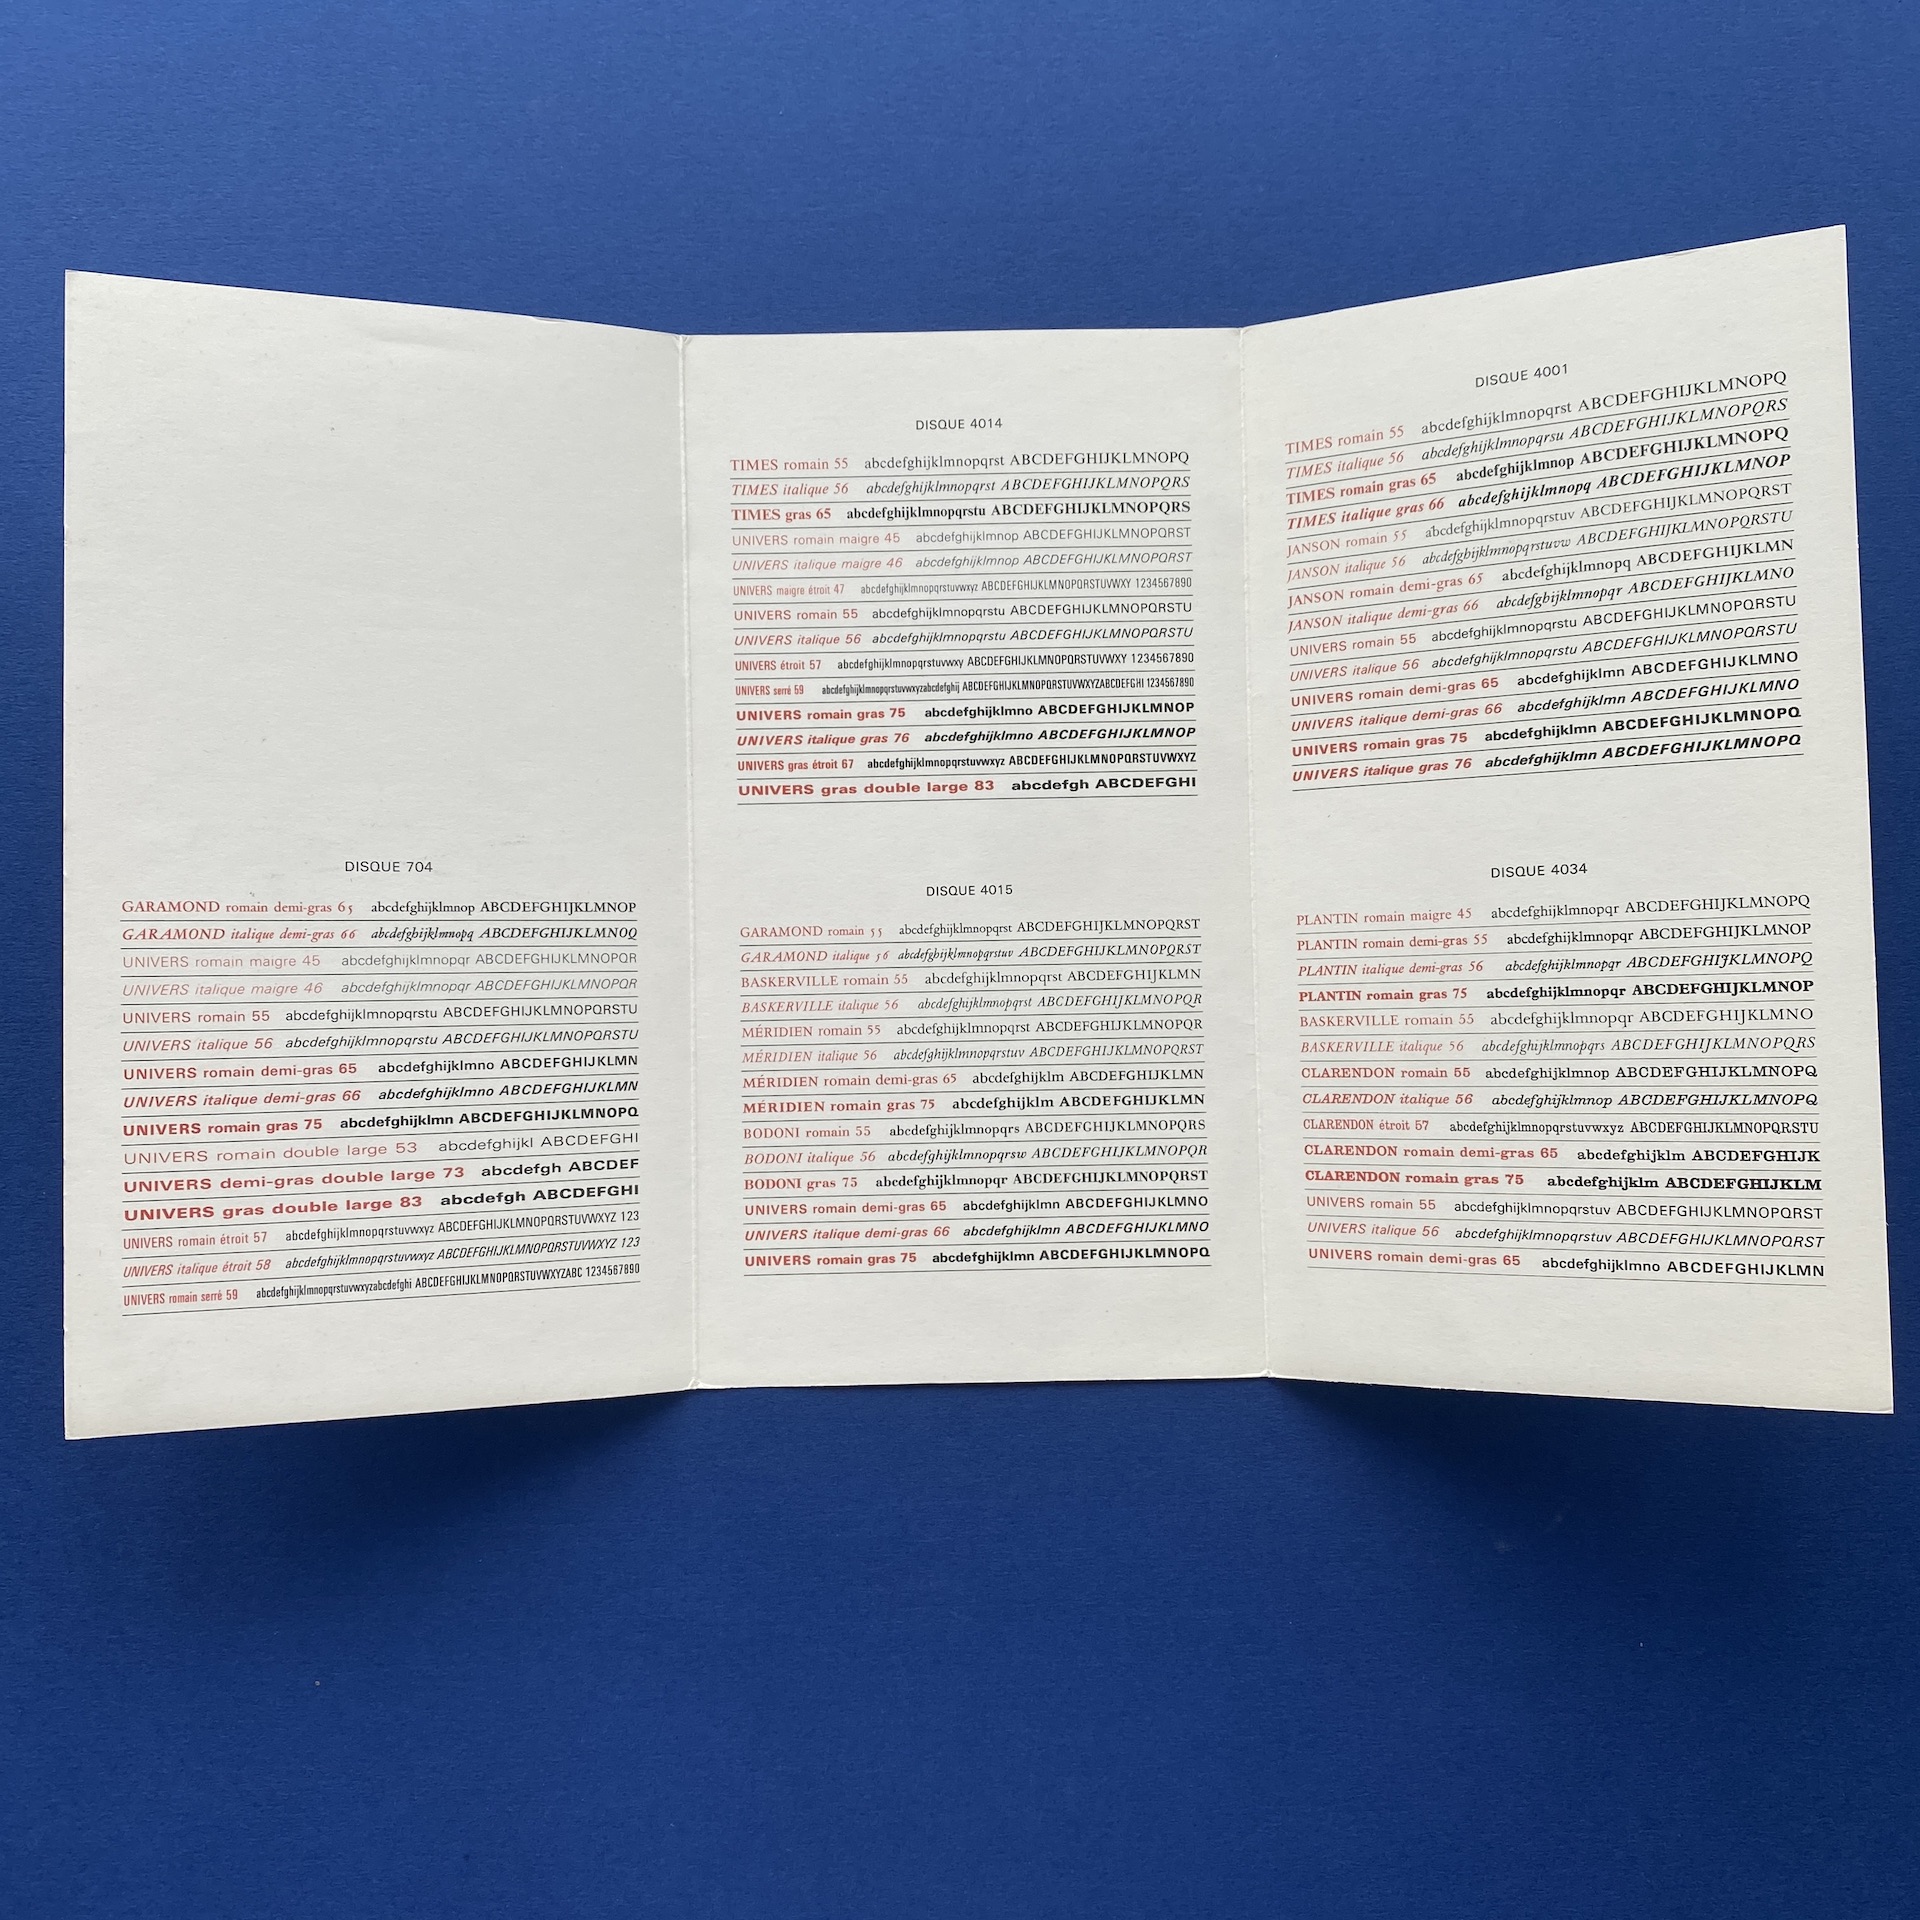 DISQUE 704
GARAMOND romain demi-gras 65 abcdefghijklmnop ABCDEFGHIJKLMNOP
GARAMOND italique demi-gras 66 abcdefghijklmnopq ABCDEFGHIJKLMNOQ
UNIVERS romain maigre 45 abcdefghijklmnopqr ABCDEFGHIJKLMNOPQR
UNIVERS italique maigre 46 abcdefghijklmnopqr ABCDEFGHIJKLMNOPQR
UNIVERS romain 55 abcdefghijklmnopqrstu ABCDEFGHIJKLMNOPQRSTU
UNIVERS italique 56 abcdefghijklmnopqrstu ABCDEFGHIJKLMNOPQRSTU
UNIVERS romain demi-gras 65 abcdefghijklmno ABCDEFGHIJKLMN
UNIVERS italique demi-gras 66 abcdefghijklmno ABCDEFGHIJKLMN
UNIVERS romain gras 75 abcdefghijklmn ABCDEFGHIJKLMNOPQ
UNIVERS romain double large 53 abcdefghijkl ABCDEFGHI
UNIVERS demi-gras double large 73 abcdefgh ABCDEF
UNIVERS gras double large 83 abcdefgh ABCDEFGHI
UNIVERS romain étroit 57 abcdefghijklmnopqrstuvwxyz ABCDEFGHIJKLMNOPQRSTUVWXYZ 123
UNIVERS italique étroit 58 abcdefghijklmnopqrstuvwxyz ABCDEFGHIJKLMNOPQRSTUVWXYZ 123
UNIVERS romain serré 59 abcdefghijklmnopqrstuvwxyzabcdefghi ABCDEFGHIJKLMNOPQRSTUVWXYZABC 1234567890
DISQUE 4014
TIMES romain 55 abcdefghijklmnopqrst ABCDEFGHIJKLMNOPQ
TIMES italique 56 abcdefghijklmnopqrst ABCDEFGHIJKLMNOPQRS
TIMES gras 65 abcdefghijklmnopqrstu ABCDEFGHIJKLMNOPQRS
UNIVERS romain maigre 45 abcdefghijklmnop ABCDEFGHIJKLMNOPQRST
UNIVERS italique maigre 46 abcdefghijklmnop ABCDEFGHIJKLMNOPQRST
UNIVERS maigre étroit 47 abcdefghijklmnopqrstuvwxyz ABCDEFGHIJKLMNOPQRSTUVWXY 1234567890
UNIVERS romain 55 abcdefghijklmnopqrstu ABCDEFGHIJKLMNOPQRSTU
UNIVERS italique 56 abcdefghijklmnopqrstu ABCDEFGHIJKLMNOPQRSTU
UNIVERS étroit 57 abcdefghijklmnopqrstuvwxy ABCDEFGHIJKLMNOPQRSTUVWXY 1234567890
UNIVERS serré 59 abcdefghijklmnopqrstuvwxyzabcdefghij ABCDEFGHIJKLMNOPQRSTUVWXYZABCDEFGHI 1234567890
UNIVERS romain gras 75 abcdefghijklmno ABCDEFGHIJKLMNOP
UNIVERS italique gras 76 abcdefghijklmno ABCDEFGHIJKLMNOP
UNIVERS gras étroit 67 abcdefghijklmnopqrstuvwxyz ABCDEFGHIJKLMNOPQRSTUVWXYZ
UNIVERS gras double large 83 abcdefgh ABCDEFGHI
DISQUE 4015
GARAMOND romain 55 abcdefghijklmnopqrst ABCDEFGHIJKLMNOPQRST
GARAMOND italique 56 abcdefghijklmnopqrstuv ABCDEFGHIJKLMNOPQRST
BASKERVILLE romain 55 abcdefghijklmnopqrst ABCDEFGHIJKLMN
BASKERVILLE italique 56 abcdefghijklmnopqrst ABCDEFGHIJKLMNOPQR
MÉRIDIEN romain 55 abcdefghijklmnopqrst ABCDEFGHIJKLMNOPQR
MÉRIDIEN italique 56 abcdefghijklmnopqrstuv ABCDEFGHIJKLMNOPQRST
MÉRIDIEN romain demi-gras 65 abcdefghijklm ABCDEFGHIJKLMN
MÉRIDIEN romain gras 75 abcdefghijklm ABCDEFGHIJKLMN
BODONI romain 55 abcdefghijklmnopqrs ABCDEFGHIJKLMNOPQRS
BODONI italique 56 abcdefghijklmnopqrsw ABCDEFGHIJKLMNOPQR
BODONI gras 75 abcdefghijklmnopqr ABCDEFGHIJKLMNOPQRST
UNIVERS romain demi-gras 65 abcdefghijklmn ABCDEFGHIJKLMNO
UNIVERS italique demi-gras 66 abcdefghijklmn ABCDEFGHIJKLMNO
UNIVERS romain gras 75 abcdefghijklmn ABCDEFGHIJKLMNOPQ
DISQUE 4001
TIMES romain 55 abcdefghijklmnopqrst ABCDEFGHIJKLMNOPQ
TIMES italique 56 abcdefghijklmnopqrsu ABCDEFGHIJKLMNOPQRS
TIMES romain gras 65 abcdefghijklmnop ABCDEFGHIJKLMNOPQ
TIMES italique gras 66 abcdefghijklmnopq ABCDEFGHIJKLMNOP
JANSON romain 55 abcdefghijklmnopqrstuv ABCDEFGHIJKLMNOPQRST
JANSON italique 56 abcdefghijklmnopqrstuvw ABCDEFGHIJKLMNOPQRSTU
JANSON romain demi-gras 65 abcdefghijklmnopq ABCDEFGHIJKLMN
JANSON italique demi-gras 66 abcdefghijklmnopqr ABCDEFGHIJKLMNO
UNIVERS romain 55 abcdefghijklmnopqrstu ABCDEFGHIJKLMNOPQRSTU
UNIVERS italique 56 abcdefghijklmnopqrstu ABCDEFGHIJKLMNOPQRSTU
UNIVERS romain demi-gras 65 abcdefghijklmn ABCDEFGHIJKLMNO
UNIVERS italique demi-gras 66 abcdefghijklmn ABCDEFGHIJKLMNO
UNIVERS romain gras 75 abcdefghijklmn ABCDEFGHIJKLMNOPQ
UNIVERS italique gras 76 abcdefghijklmn ABCDEFGHIJKLMNOPQ
DISQUE 4034
PLANTIN romain maigre 45 abcdefghijklmnopqr ABCDEFGHIJKLMNOPQ
PLANTIN romain demi-gras 55 abcdefghijklmnopqr ABCDEFGHIJKLMNOP
PLANTIN italique demi-gras 56 abcdefghijklmnopqr ABCDEFGHIJKLMNOPQ
PLANTIN romain gras 75 abcdefghijklmnopqr ABCDEFGHIJKLMNOP
BASKERVILLE romain 55 abcdefghijklmnopqr ABCDEFGHIJKLMNO
BASKERVILLE italique 56 abcdefghijklmnopqrs ABCDEFGHIJKLMNOPQRS
CLARENDON romain 55 abcdefghijklmnop ABCDEFGHIJKLMNOPQ
CLARENDON italique 56 abcdefghijklmnop ABCDEFGHIJKLMNOPQ
CLARENDON étroit 57 abcdefghijklmnopqrstuvwxyz ABCDEFGHIJKLMNOPQRSTU
CLARENDON romain demi-gras 65 abcdefghijklm ABCDEFGHIJK
CLARENDON romain gras 75 abcdefghijklm ABCDEFGHIJKLM
UNIVERS romain 55 abcdefghijklmnopqrstuv ABCDEFGHIJKLMNOPQRST
UNIVERS italique 56 abcdefghijklmnopqrstuv ABCDEFGHIJKLMNOPQRST
UNIVERS romain demi-gras 65 abcdefghijklmno ABCDEFGHIJKLMN